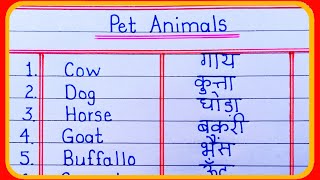 Pet Animals
1. Cow गाय
2. Dog कुत्ता
3. Horse घोड़ा
4. Goat बकरी
5. Buffallo भैंस